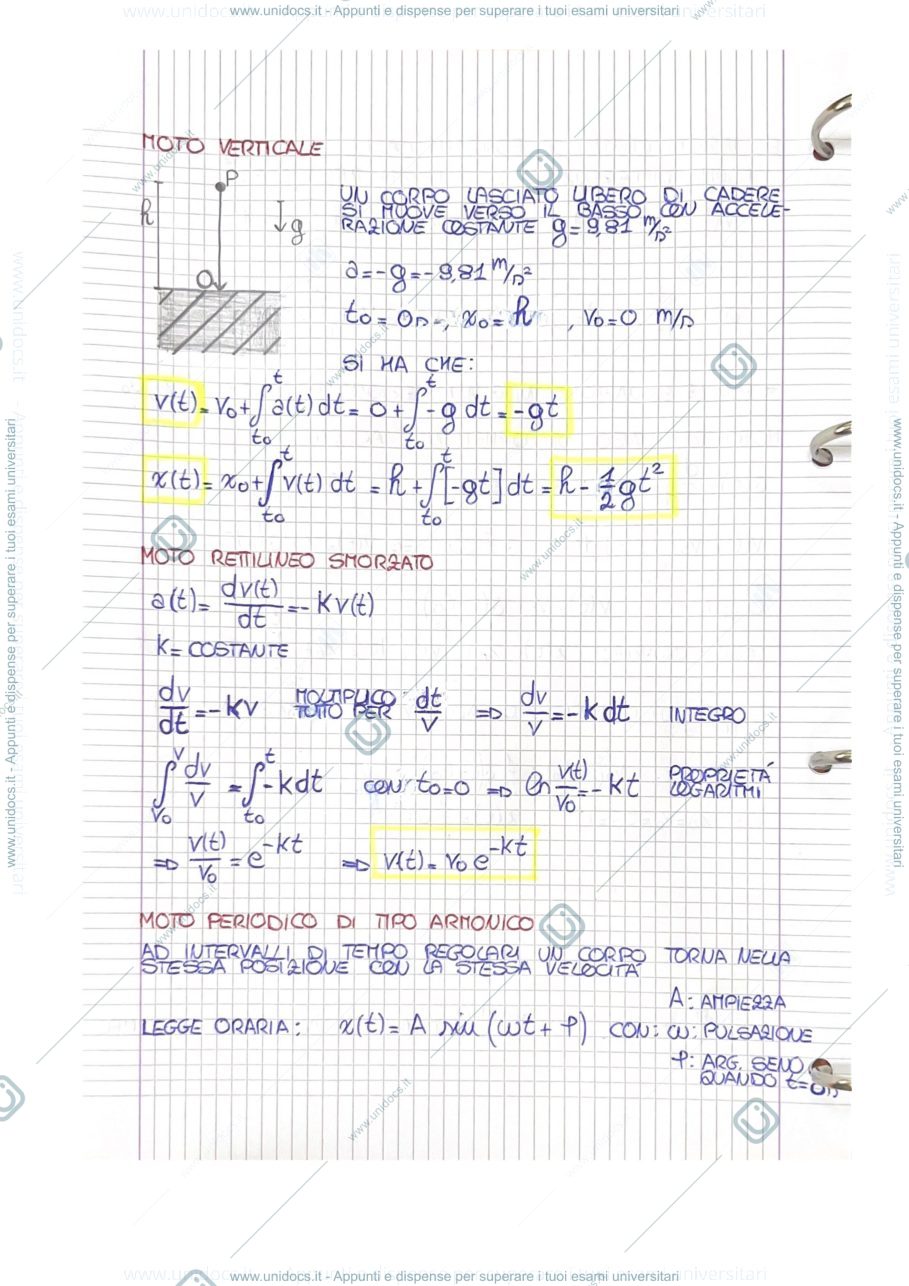 www.unidocs.it - Appunti e dispense per superare i tuoi esami universitari
MOTO VERTICALE
P
h
g
O
UN CORPO LASCIATO LIBERO DI CADERE
SI MUOVE VERSO IL BASSO CON ACCELE-
RAZIONE COSTANTE g = 9,81 m/s²
a = -g = -9,81 m/s²
t₀ = 0s, x₀ = h , v₀ = 0 m/s
SI HA CHE:
v(t) = v₀ + ∫_{t₀}^{t} a(t) dt = 0 + ∫_{t₀}^{t} -g dt = -gt
x(t) = x₀ + ∫_{t₀}^{t} v(t) dt = h + ∫_{t₀}^{t} [-gt] dt = h - 1/2 gt²
MOTO RETTILINEO SMORZATO
a(t) = dv(t)/dt = -Kv(t)
K = COSTANTE
dv/dt = -Kv MOLTIPLICO TUTTO PER dt/v ⇒ dv/v = -K dt INTEGRO
∫_{v₀}^{v} dv/v = ∫_{t₀}^{t} -K dt con t₀ = 0 ⇒ ln v(t)/v₀ = -Kt PROPRIETÀ LOGARITMI
⇒ v(t)/v₀ = e^{-Kt} ⇒ v(t) = v₀ e^{-Kt}
MOTO PERIODICO DI TIPO ARMONICO
AD INTERVALLI DI TEMPO REGOLARI UN CORPO TORNA NELLA
STESSA POSIZIONE CON LA STESSA VELOCITÀ
A: AMPIEZZA
LEGGE ORARIA: x(t) = A sin (ωt + φ) CON: ω: PULSAZIONE
φ: ARG. SENO
QUANDO t = 0s
www.unidocs.it - Appunti e dispense per superare i tuoi esami universitari
www.unidocs.it - Appunti e dispense per superare i tuoi esami universitari
www.unidocs.it - Appunti e dispense per superare i tuoi esami universitari